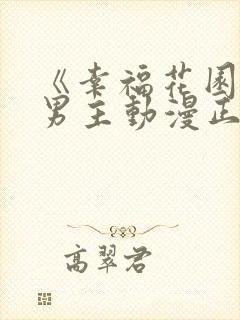 《幸福花園
男主動漫正
高翠君